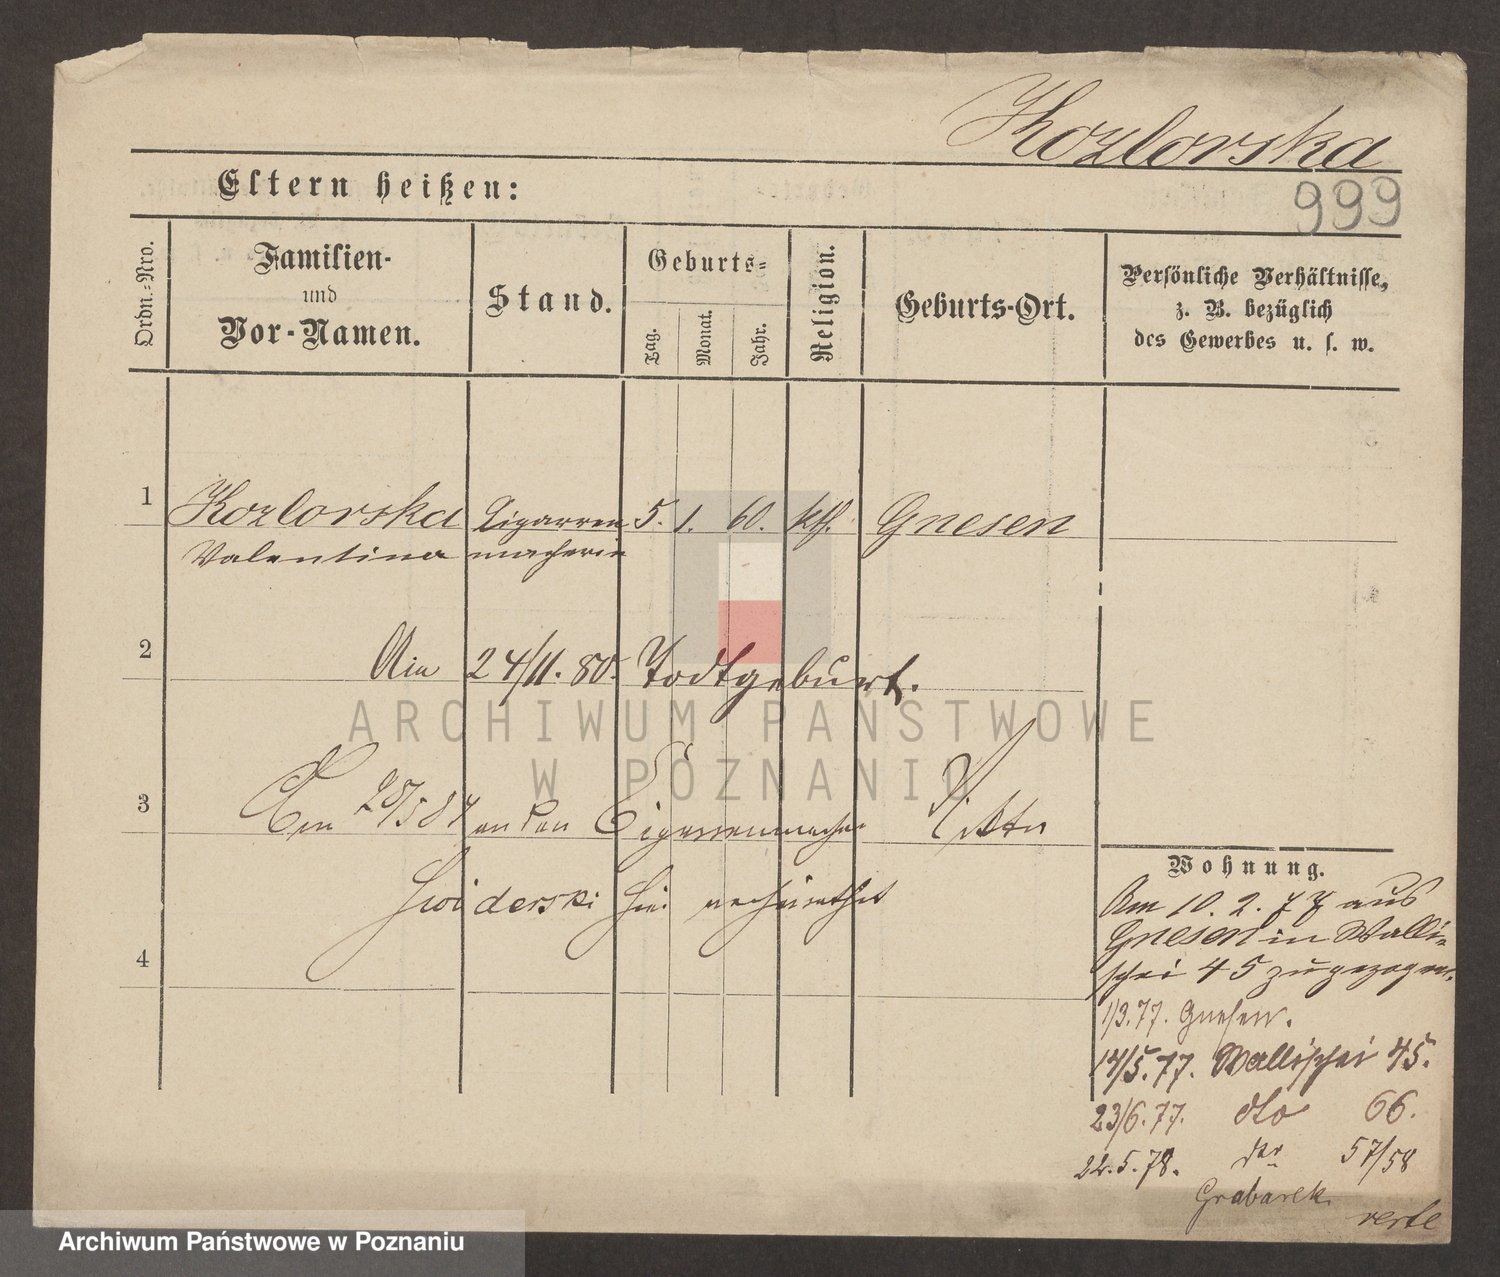 Kozlovska
999
Eltern heißen:
Ordn.-Nro.
Familien-
und
Vor-Namen.
Stand.
Geburts-
Tag.
Monat.
Jahr.
Religion.
Geburts-Ort.
Persönliche Verhältnisse,
z. B. bezüglich
des Gewerbes u. s. w.
1 Kozlovska Cigarren 5. 1. 60. kth. Gnesen
Valentina macherin
2 Am 24/11. 80. Todtgeburt.
ARCHIWUM PAŃSTWOWE
W POZNANIU
3 Am 28/5 84 an den Cigarrenmacher
Swiderski hier verheirathet
4
Wohnung.
Am 10. 2. 77 aus
Gnesen in Walli-
schei 45 zugezogen.
1/3. 77. Gnesen.
14/5. 77. Wallischei 45.
23/6. 77. dto 66.
22. 5. 78. 57/58
Grabarek
verte
Archiwum Państwowe w Poznaniu